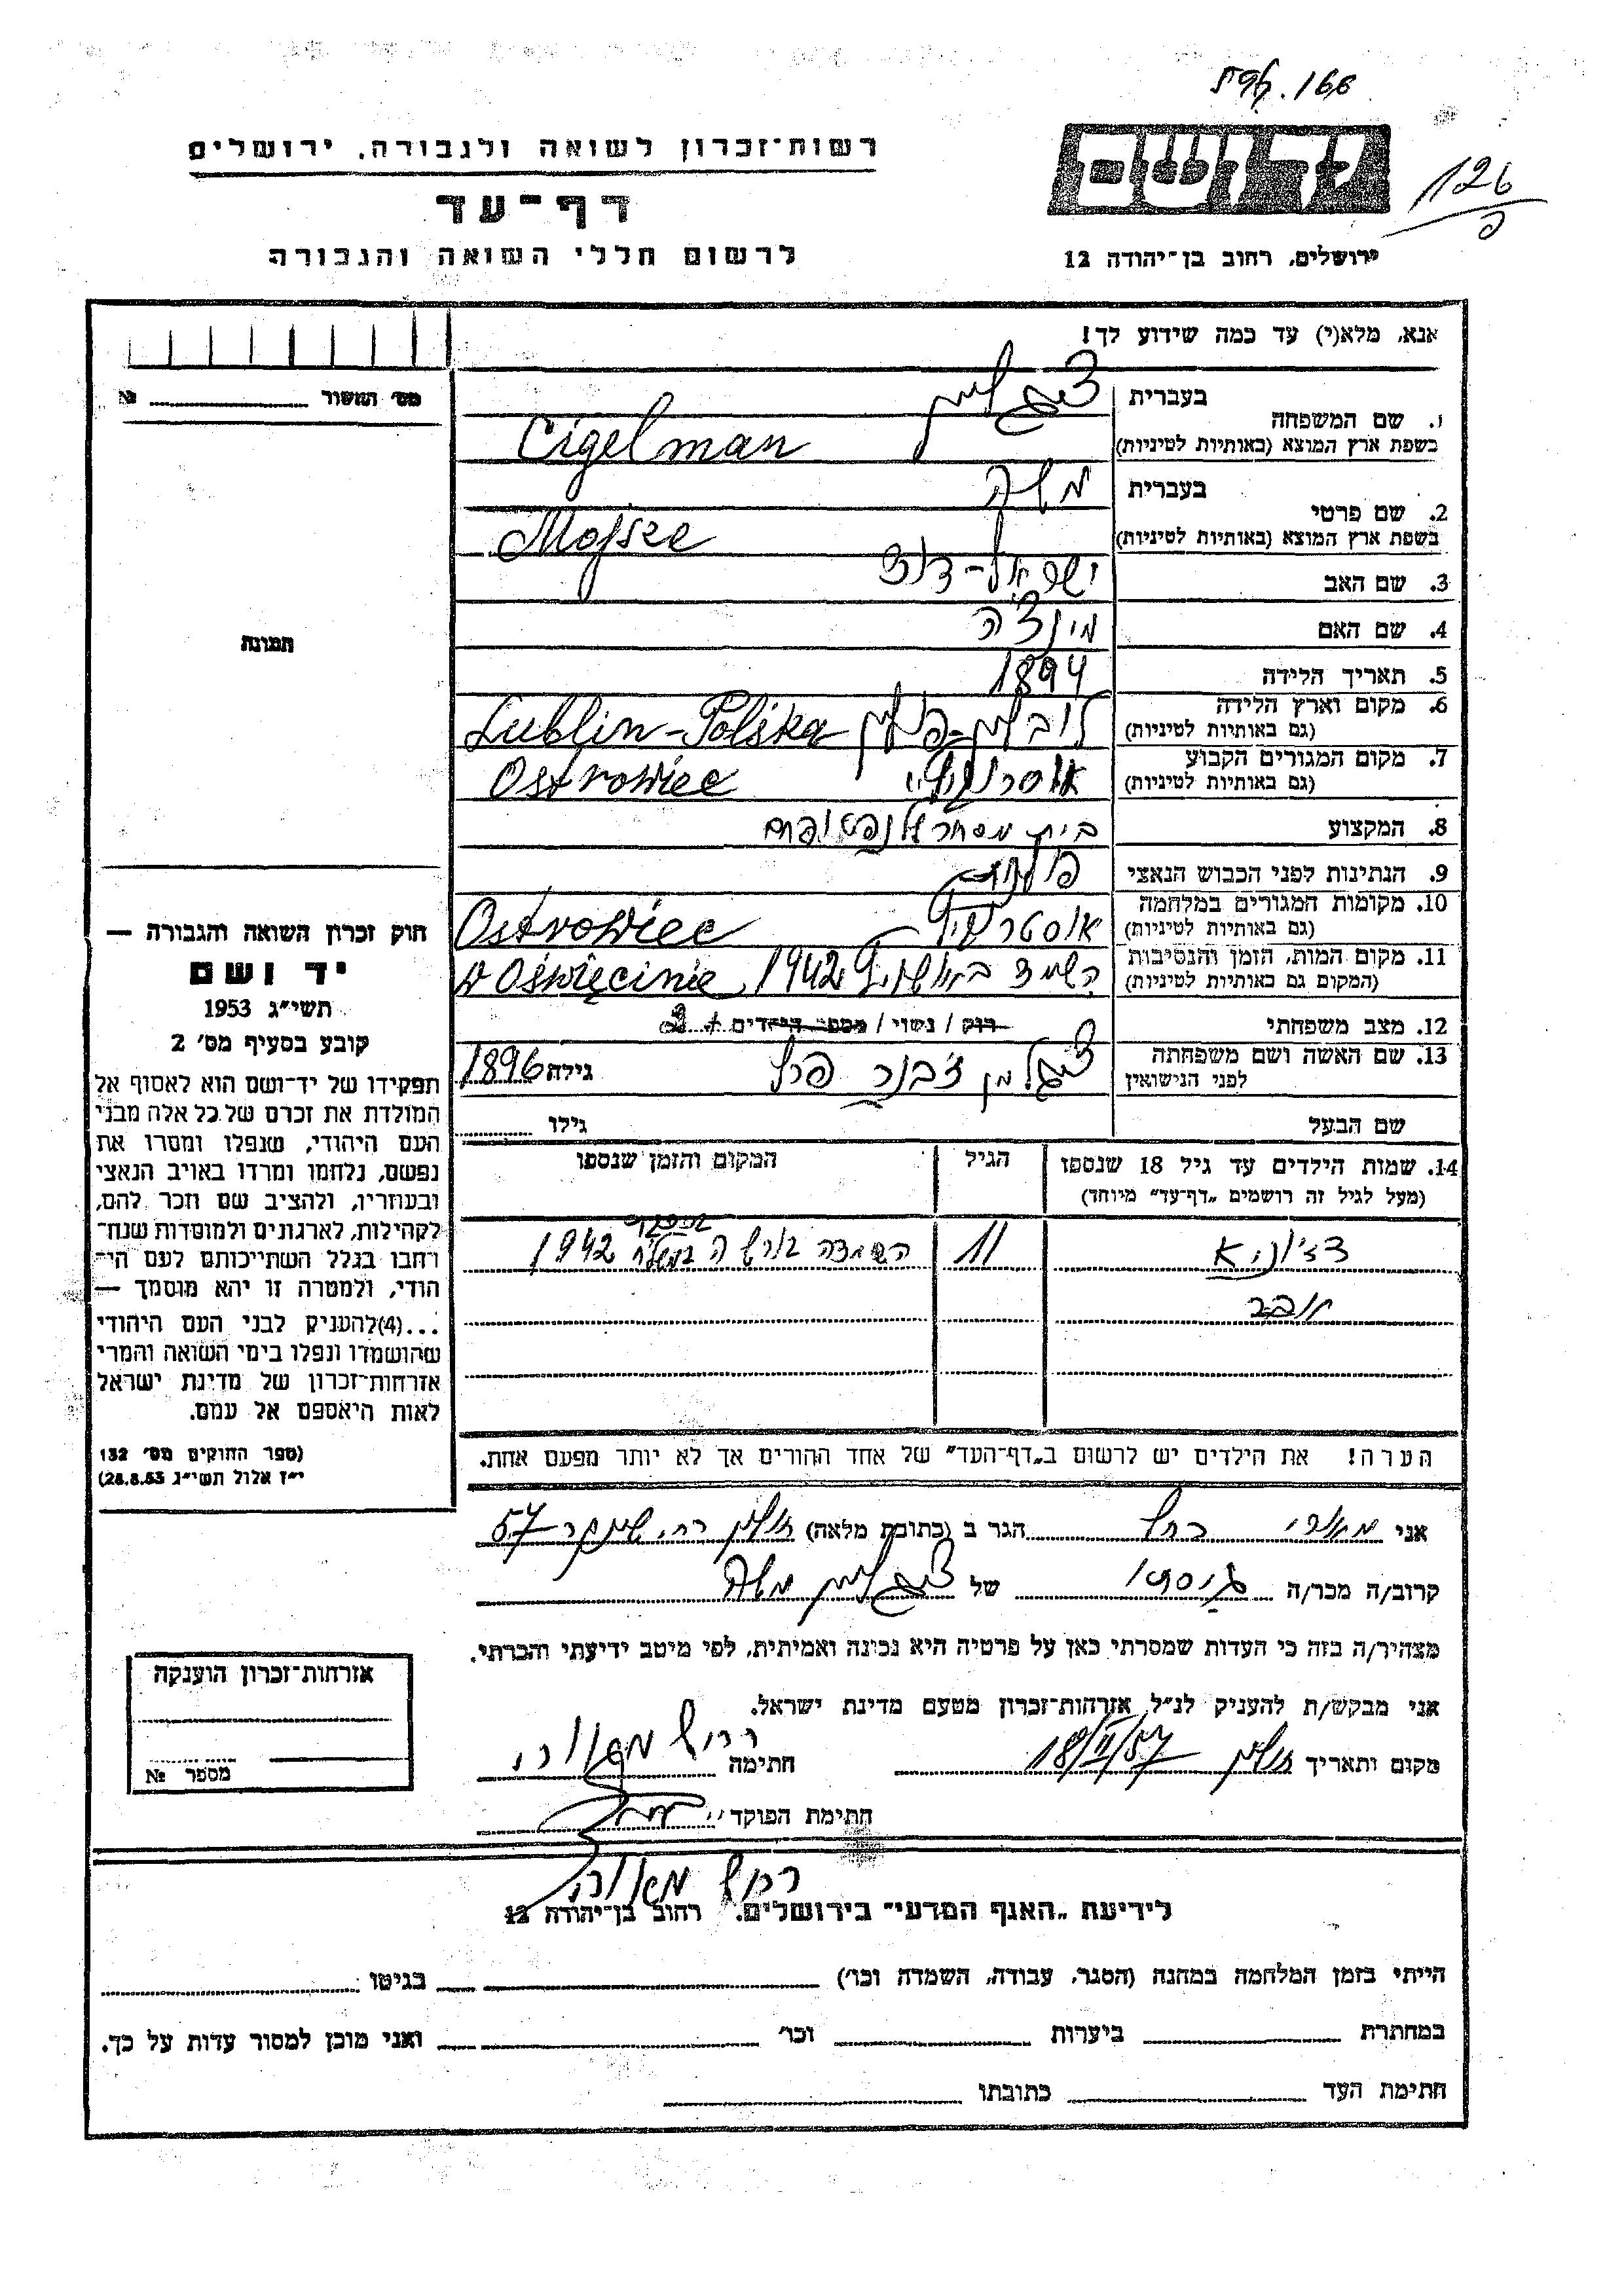 166
126
רשות־זכרון לשואה ולגבורה, ירושלים
דף־עד
לרשום חללי השואה והגבורה
ירושלים, רחוב בן־יהודה 12
אנא, מלא(י) עד כמה שידוע לך!
מס׳ התשור №
1. שם המשפחה
בעברית ציגלמן
בשפת ארץ המוצא (באותיות לטיניות) Cigelman
2. שם פרטי
בעברית משה
בשפת ארץ המוצא (באותיות לטיניות) Mojsze
3. שם האב ישראל-דוד
4. שם האם מינצ'ה
5. תאריך הלידה 1894
6. מקום וארץ הלידה
(גם באותיות לטיניות) לובלין-פולין Lublin-Polska
7. מקום המגורים הקבוע
(גם באותיות לטיניות) Ostrowiec
8. המקצוע בית מסחר
9. הנתינות לפני הכבוש הנאצי פולנית
10. מקומות המגורים במלחמה
(גם באותיות לטיניות) Ostrowiec
11. מקום המות, הזמן והנסיבות
(המקום גם באותיות לטיניות) 1942 w Oświęcimie
12. מצב משפחתי רוק / נשוי / מספר הילדים 2
13. שם האשה ושם משפחתה
לפני הנישואין ציגלמן גילה 1896
שם הבעל גילו
14. שמות הילדים עד גיל 18 שנספו
(מעל לגיל זה רושמים „דף־עד״ מיוחד)
הגיל
המקום והזמן שנספו
11 1942
הערה! את הילדים יש לרשום ב„דף־העד״ של אחד ההורים אך לא יותר מפעם אחת.
תמונה
חוק זכרון השואה והגבורה —
יד ושם
תשי״ג 1953
קובע בסעיף מס׳ 2
תפקידו של יד־ושם הוא לאסוף אל
המולדת את זכרם של כל אלה מבני
העם היהודי, שנפלו ומסרו את
נפשם, נלחמו ומרדו באויב הנאצי
ובעוזריו, ולהציב שם וזכר להם,
לקהילות, לארגונים ולמוסדות שנח־
רחבו בגלל השתייכותם לעם הי־
הודי, ולמטרה זו יהא מוסמך —
...(4)להעניק לבני העם היהודי
שהושמדו ונפלו בימי השואה והמרי
אזרחות־זכרון של מדינת ישראל
לאות היאספם אל עמם.
(ספר החוקים מס׳ 132
י״ז אלול תשי״ג 28.8.53)
אני מאורי רחל הגר ב (כתובת מלאה) חולון רח׳ 57
קרוב/ה מכר/ה גיסתו של ציגלמן משה
מצהיר/ה בזה כי העדות שמסרתי כאן על פרטיה היא נכונה ואמיתית, לפי מיטב ידיעתי והכרתי.
אני מבקש/ת להעניק לנ״ל אזרחות־זכרון מטעם מדינת ישראל.
מקום ותאריך חולון 18/II/57 חתימה רחל מאורי
חתימת הפוקד
רחל מאורי
אזרחות־זכרון הוענקה
מספר №
לידיעת „האגף המדעי״ בירושלים, רחוב בן־יהודה 12
הייתי בזמן המלחמה במחנה (הסגר, עבודה, השמדה וכו׳) בגיטו
במחתרת ביערות וכו׳ ואני מוכן למסור עדות על כך.
חתימת העד כתובתו